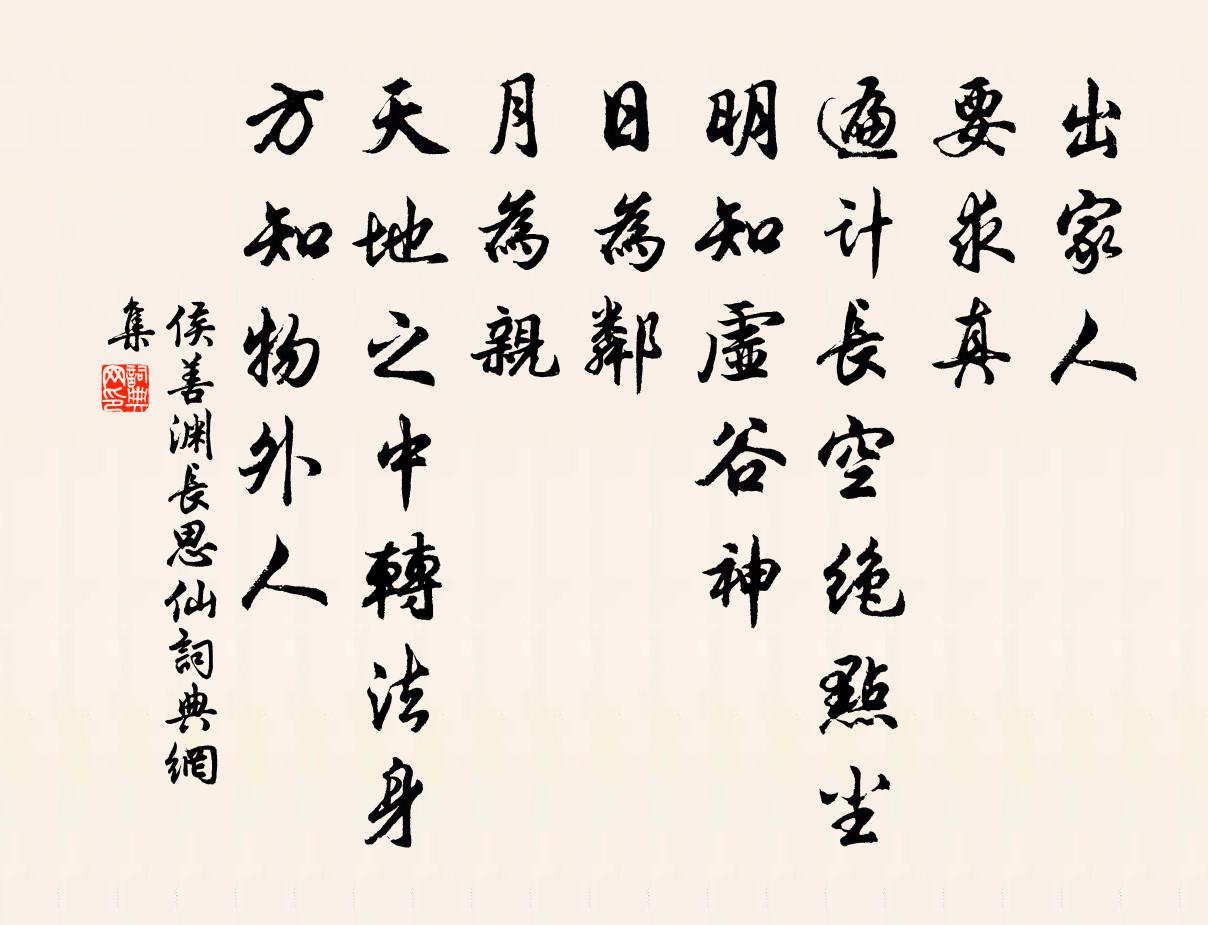 出家人
要求真
遍計長空絶點塵
明知虛谷神
日為鄰
月為親
天地之中轉法身
方知物外人
侯善渊長思仙詞典網
集
詞典網印